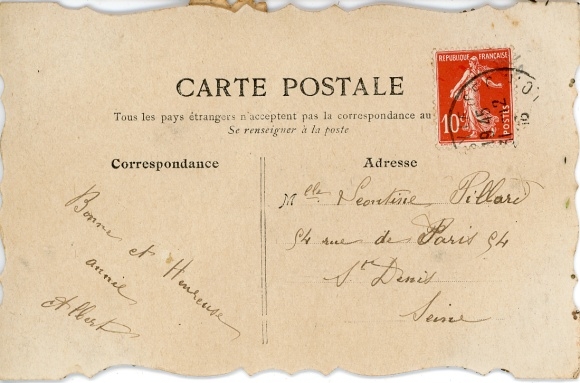 CARTE POSTALE
Tous les pays étrangers n'acceptent pas la correspondance au
Se renseigner à la poste
RÉPUBLIQUE FRANÇAISE
10c
POSTES
Correspondance
Bonne et Heureuse
année
Albert
Adresse
Mlle Leontine Pillard
54 rue de Paris 54
St Denis
Seine